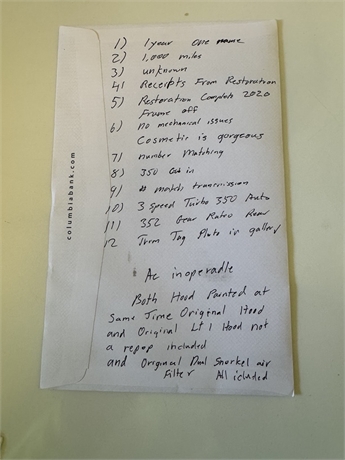 columbiabank.com
1) 1 year one name
2) 1,000 miles
3) unknown
4) Receipts From Restoration
5) Restoration Complete 2020
Frame off
6) no mechanical issues
Cosmetic is gorgeous
7) number Matching
8) 350 in
9) # matchs transmission
10) 3 Speed Turbo 350 Auto
11) 352 Gear Ratio Rear
12 Trim Tag Plate in gallery
Ac inoperable
Both Hood Painted at
Same Time Original Hood
and Original Lt 1 Hood not
a repop included
and Original Dual Snorkel air
Filter All icluded